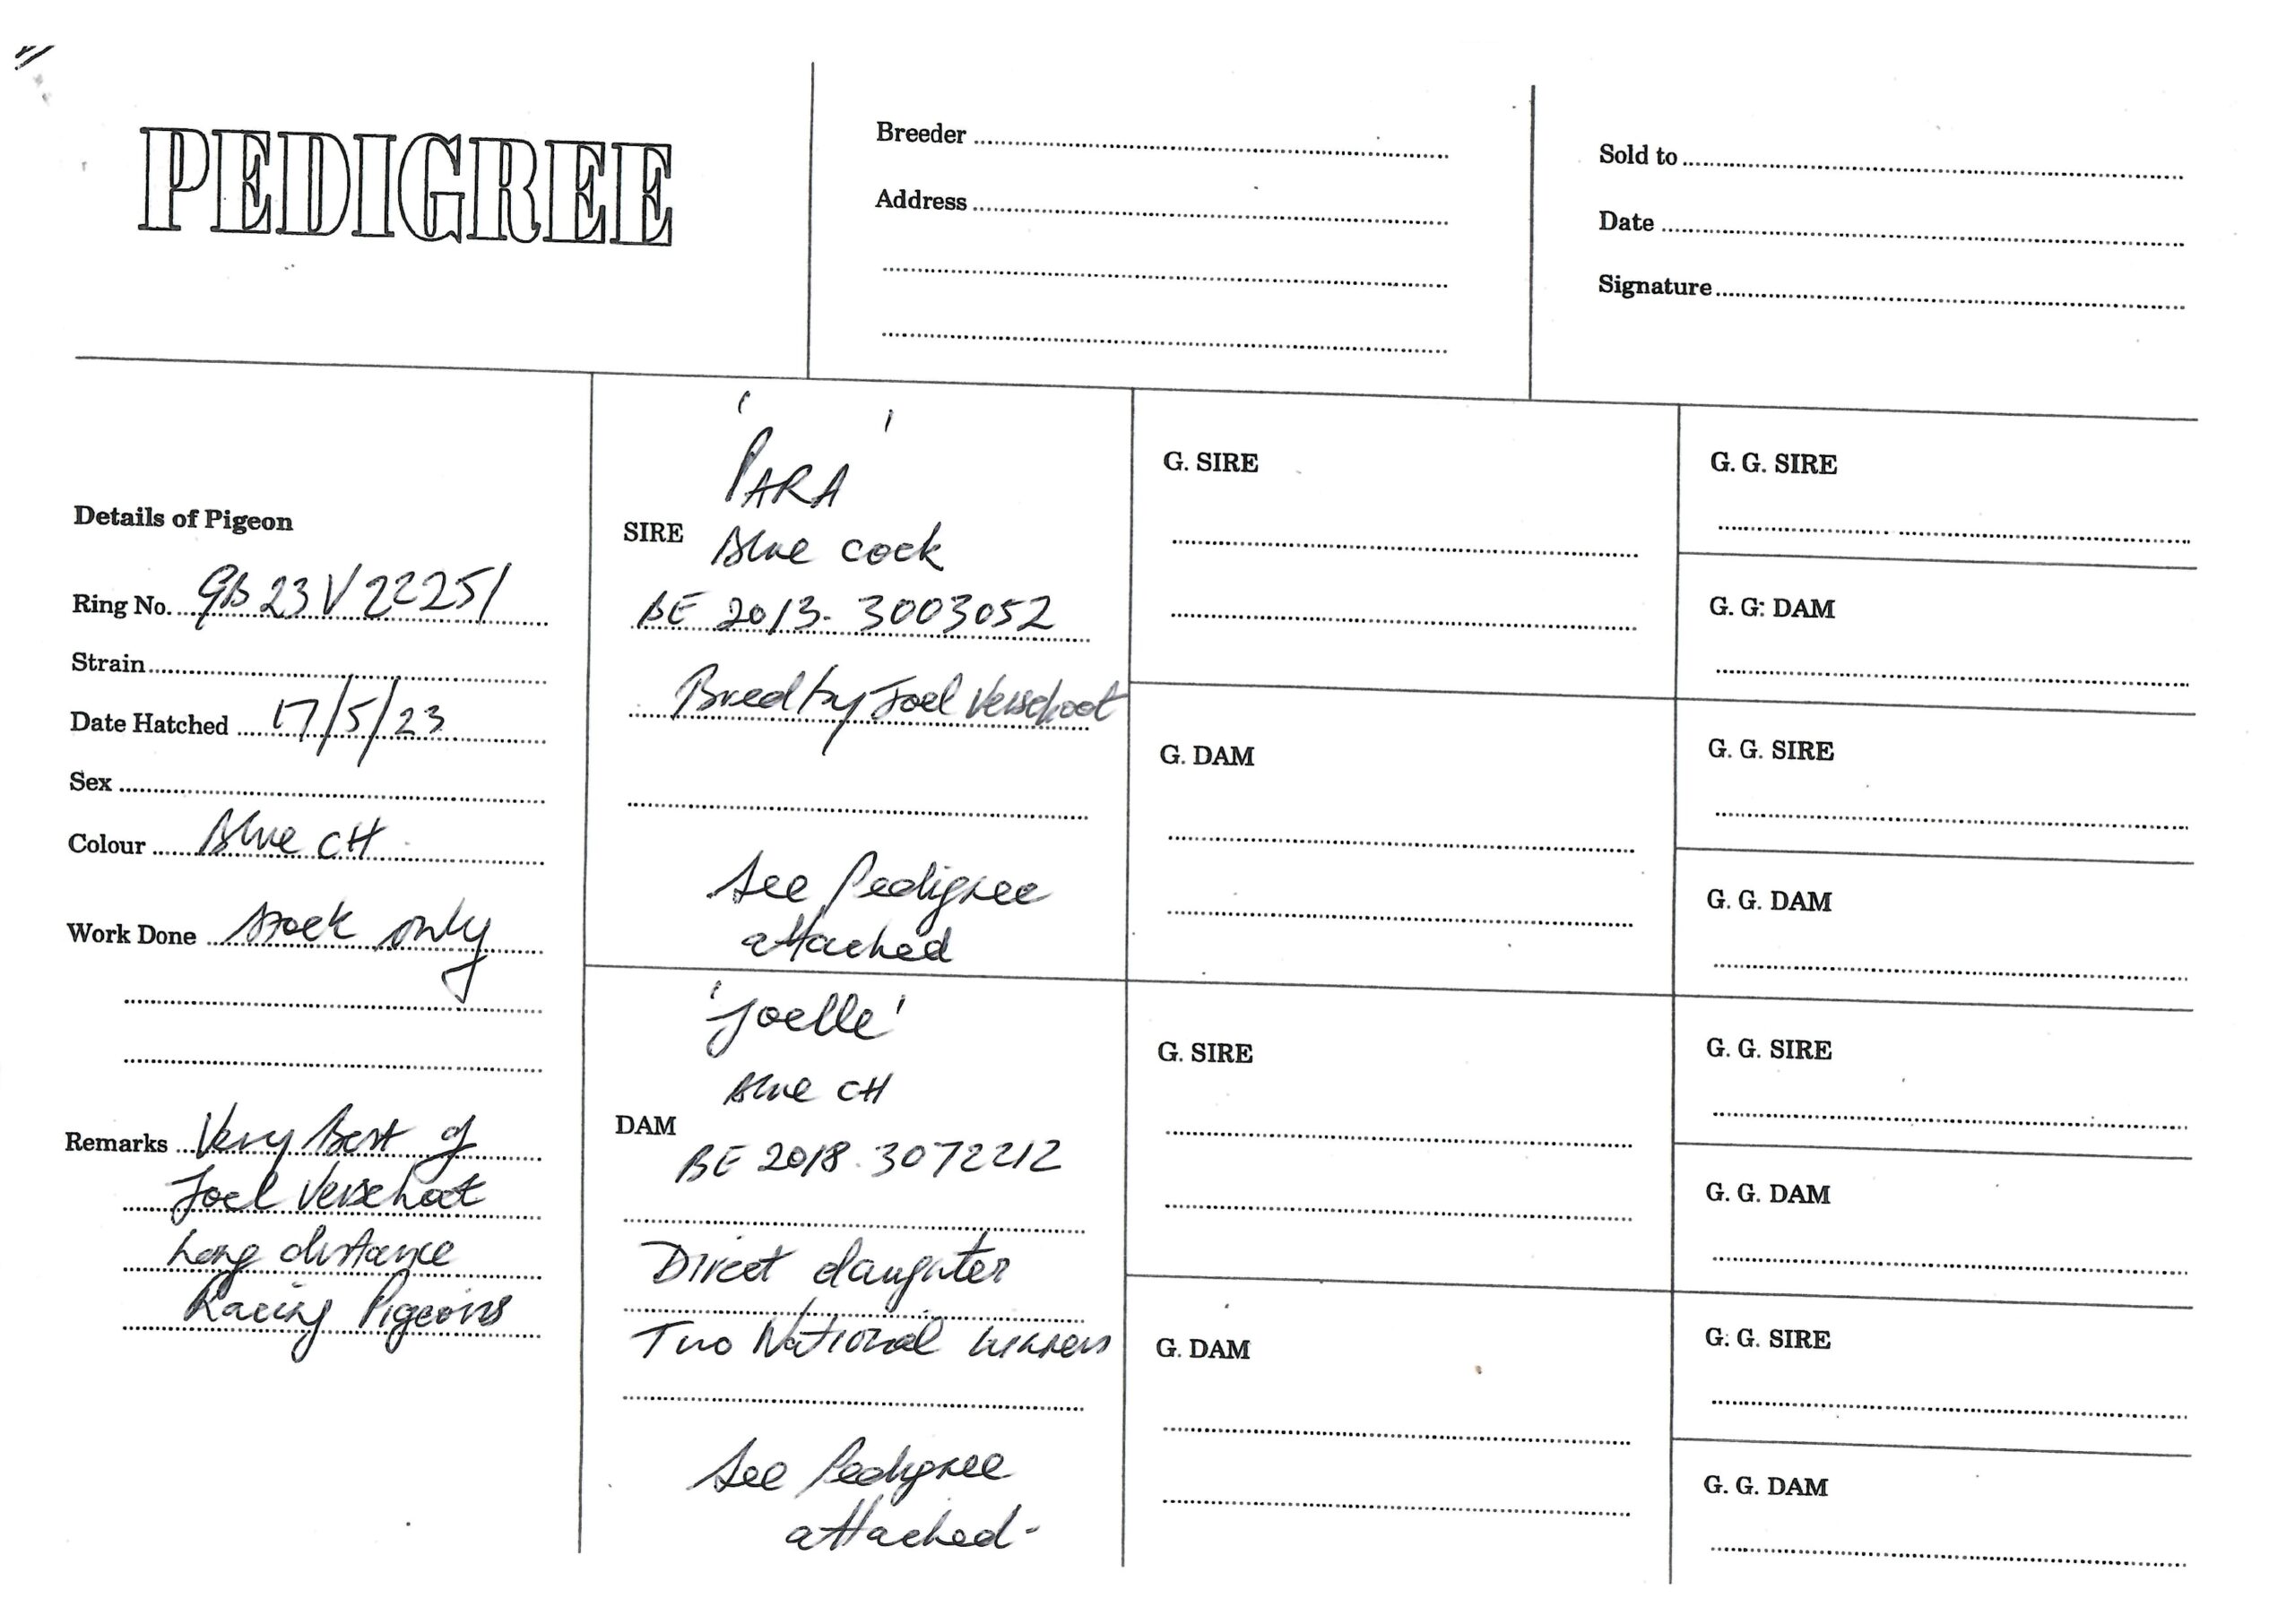 PEDIGREE
Breeder
Address
Sold to
Date
Signature
Details of Pigeon
Ring No. GB 23 V 22251
Strain
Date Hatched 17/5/23
Sex
Colour Blue CH
Work Done Stock only
Remarks Very Best of
Joel Verschoot
Long distance
Racing Pigeons
'PARA'
SIRE Blue cock
BE 2013. 3003052
Bred by Joel Verschoot
See Pedigree
attached
'Joelle'
Blue CH
DAM
BE 2018. 3072212
Direct daughter
Two National winners
See Pedigree
attached-
G. SIRE
G. DAM
G. SIRE
G. DAM
G. G. SIRE
G. G: DAM
G. G. SIRE
G. G. DAM
G. G. SIRE
G. G. DAM
G. G. SIRE
G. G. DAM